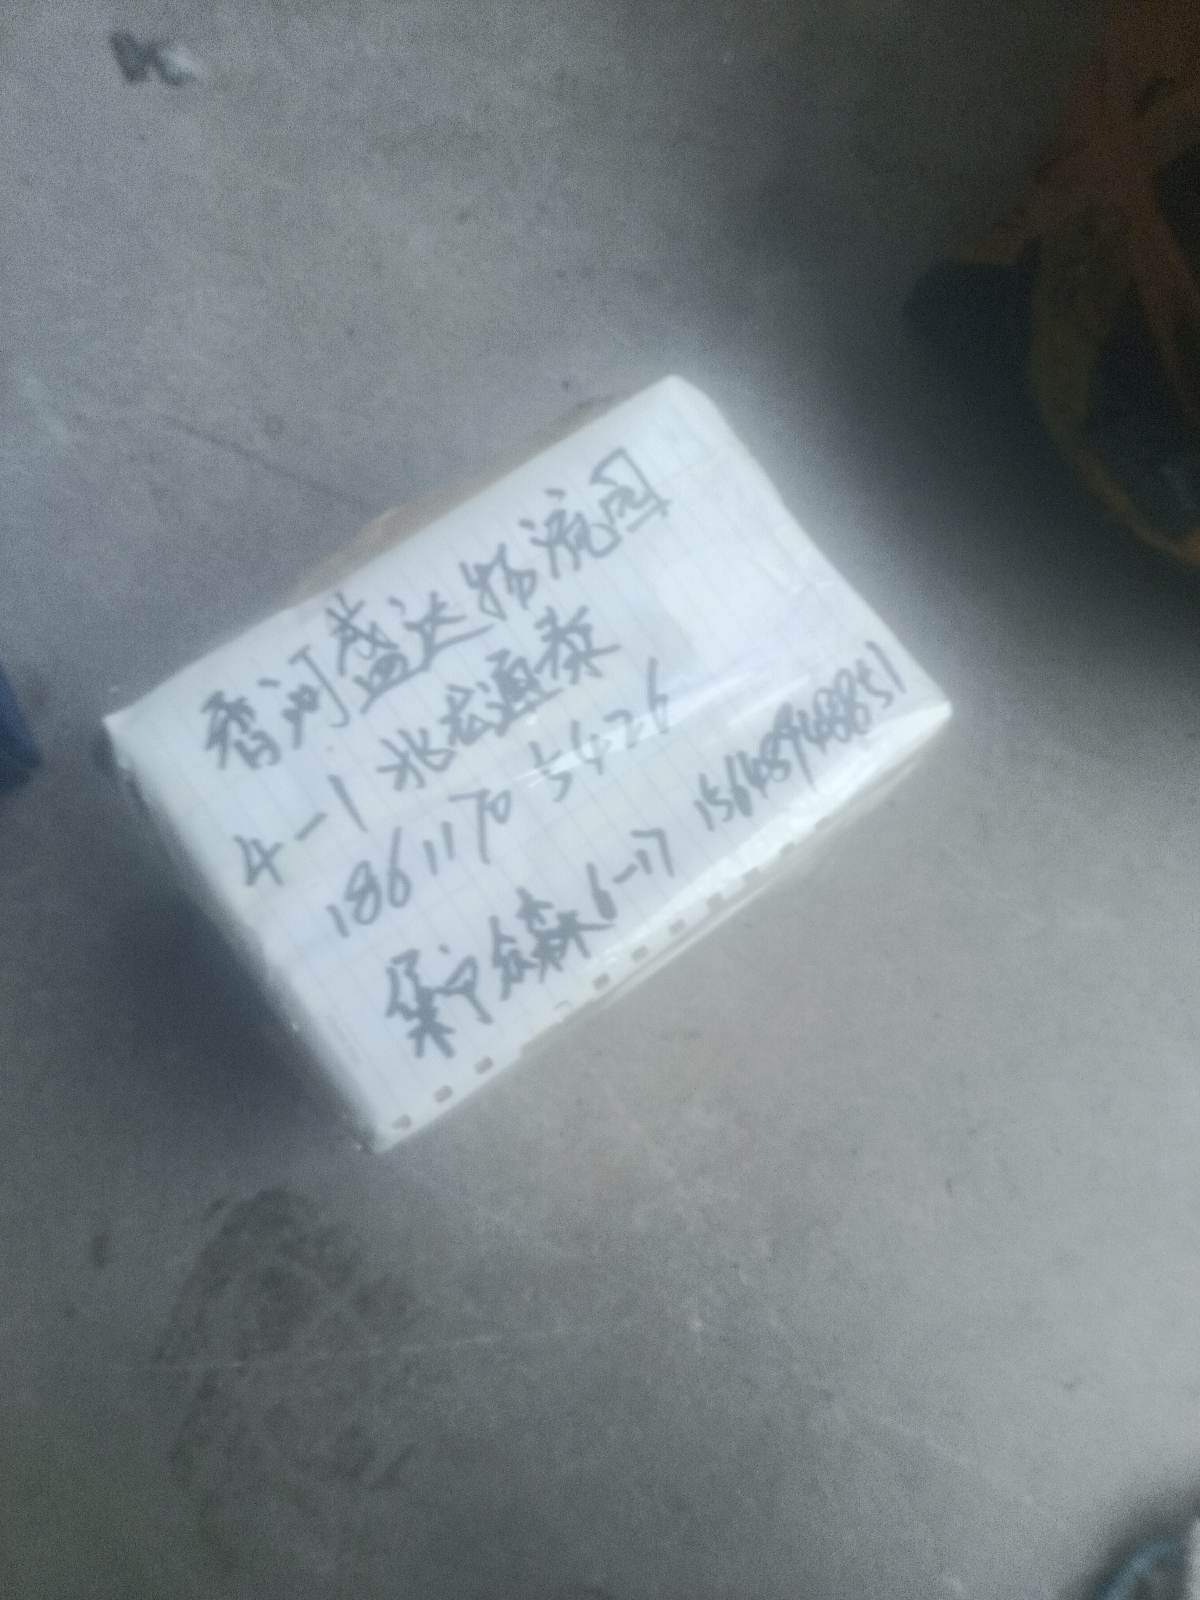 香河盛达物流园
4-1 兆龙通泰
18611705426
集宁众森6-17 15648948851